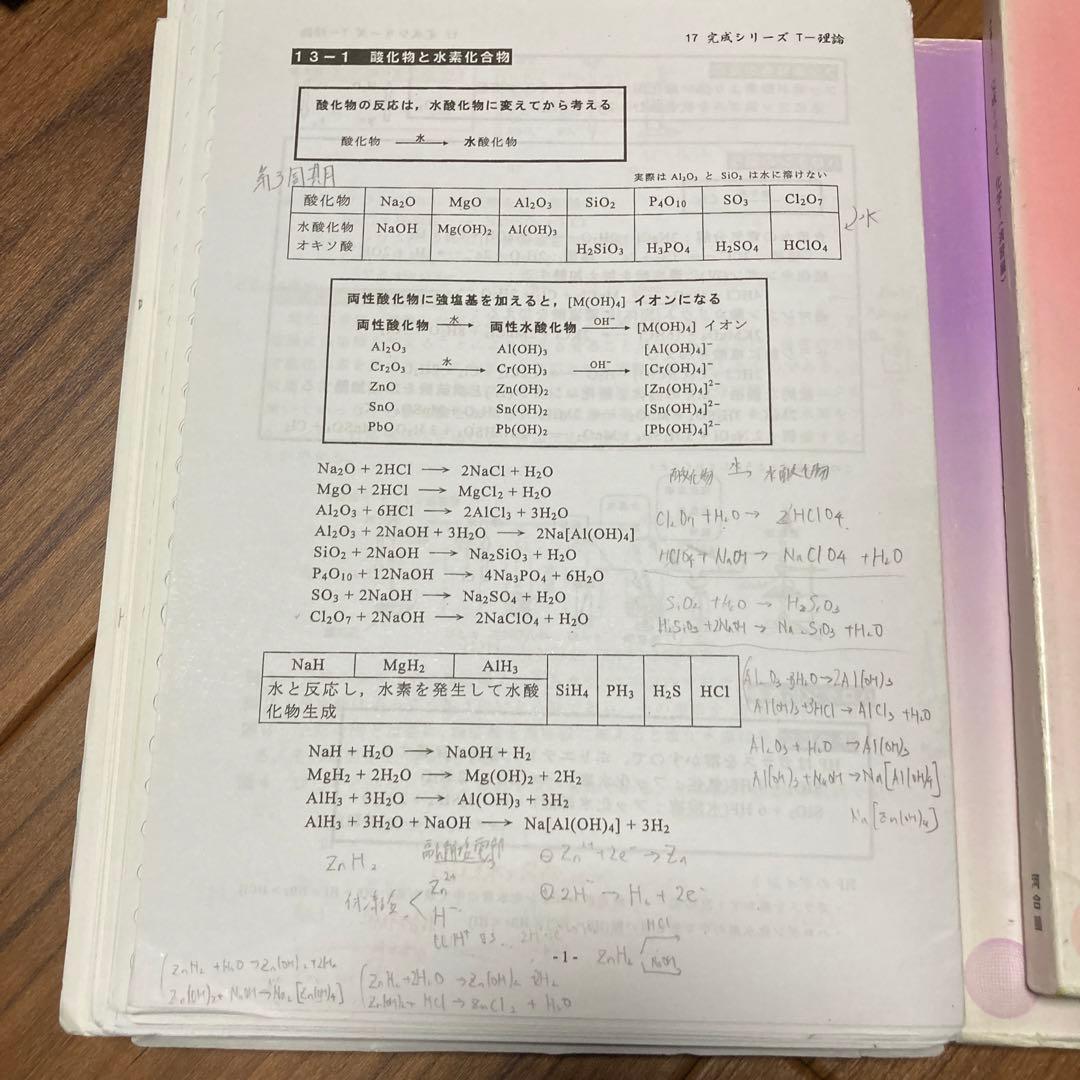 17 完成シリーズ T-理論
13-1 酸化物と水素化合物
酸化物の反応は,水酸化物に変えてから考える
酸化物 水→ 水酸化物
第3周期
実際は Al₂O₃ と SiO₂ は水に溶けない
酸化物 Na₂O MgO Al₂O₃ SiO₂ P₄O₁₀ SO₃ Cl₂O₇
水
水酸化物 NaOH Mg(OH)₂ Al(OH)₃
オキソ酸 H₂SiO₃ H₃PO₄ H₂SO₄ HClO₄
両性酸化物に強塩基を加えると,[M(OH)₄] イオンになる
両性酸化物 水→ 両性水酸化物 OH⁻→ [M(OH)₄] イオン
Al₂O₃ Al(OH)₃ [Al(OH)₄]⁻
Cr₂O₃ 水→ Cr(OH)₃ OH⁻→ [Cr(OH)₄]⁻
ZnO Zn(OH)₂ [Zn(OH)₄]²⁻
SnO Sn(OH)₂ [Sn(OH)₄]²⁻
PbO Pb(OH)₂ [Pb(OH)₄]²⁻
Na₂O + 2HCl → 2NaCl + H₂O
MgO + 2HCl → MgCl₂ + H₂O
Al₂O₃ + 6HCl → 2AlCl₃ + 3H₂O
Al₂O₃ + 2NaOH + 3H₂O → 2Na[Al(OH)₄]
SiO₂ + 2NaOH → Na₂SiO₃ + H₂O
P₄O₁₀ + 12NaOH → 4Na₃PO₄ + 6H₂O
SO₃ + 2NaOH → Na₂SO₄ + H₂O
Cl₂O₇ + 2NaOH → 2NaClO₄ + H₂O
酸化物 水→ 水酸化物
Cl₂O₇ + H₂O → 2HClO₄
HClO₄ + NaOH → NaClO₄ + H₂O
SiO₂ + H₂O → H₂SiO₃
H₂SiO₃ + 2NaOH → Na₂SiO₃ + H₂O
Al₂O₃ + 3H₂O → 2Al(OH)₃
Al(OH)₃ + 3HCl → AlCl₃ + H₂O
Al₂O₃ + H₂O → Al(OH)₃
Al(OH)₃ + NaOH → Na[Al(OH)₄]
Na[Zn(OH)₄]
NaH MgH₂ AlH₃ SiH₄ PH₃ H₂S HCl
水と反応し,水素を発生して水酸
化物生成
NaH + H₂O → NaOH + H₂
MgH₂ + 2H₂O → Mg(OH)₂ + 2H₂
AlH₃ + 3H₂O → Al(OH)₃ + 3H₂
AlH₃ + 3H₂O + NaOH → Na[Al(OH)₄] + 3H₂
ZnH₂
⊖ Zn²⁺ + 2e⁻ → Zn
Zn²⁺
H⁻
⊕ 2H⁻ → H₂ + 2e⁻
ZnH₂ HCl NaOH
- 1 -
ZnH₂ + H₂O → Zn(OH)₂ + 2H₂
Zn(OH)₂ + NaOH → Na₂[Zn(OH)₄]
ZnH₂ + 2H₂O → Zn(OH)₂ 2H₂
Zn(OH)₂ + HCl → ZnCl₂ + H₂O